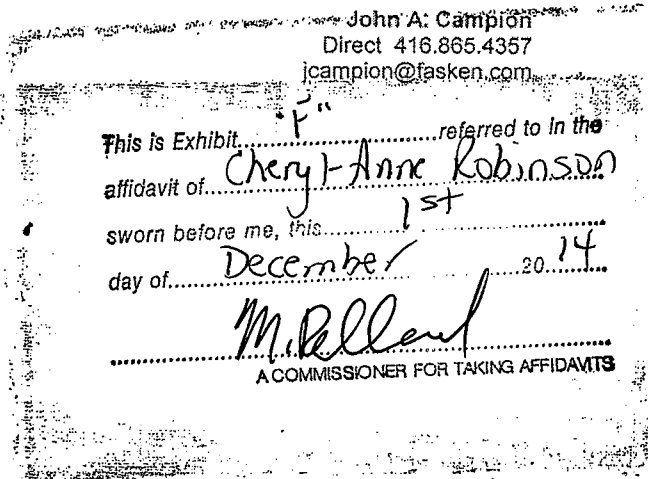 John A. Campion
Direct 416.865.4357
jcampion@fasken.com
This is Exhibit "F" referred to in the
affidavit of Cheryl-Anne Robinson
sworn before me, this 1st
day of December 20 14
A COMMISSIONER FOR TAKING AFFIDAVITS